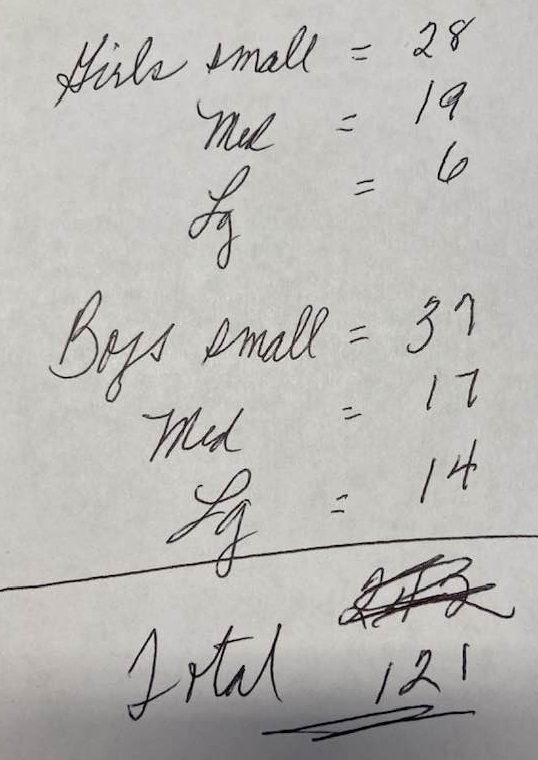 Girls small = 28
Med = 19
Lg = 6
Boys small = 37
Med = 17
Lg = 14
Total 121